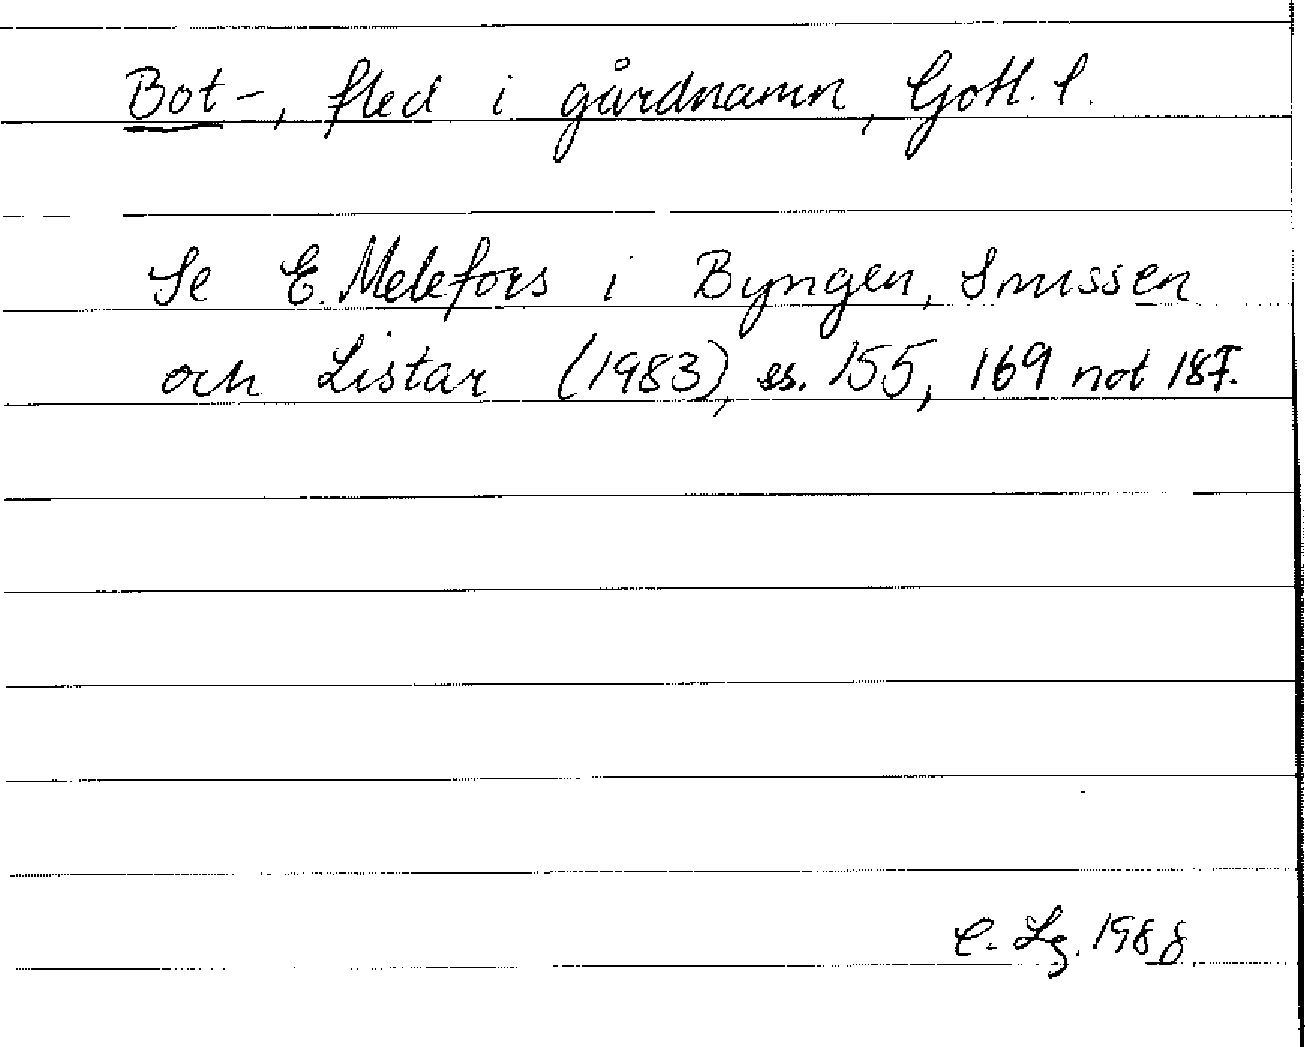 Bot-, fled i gårdnamn, Gotl. l.
Se E. Melefors i Byngen, Snussen
och Listar (1983), ss. 155, 169 not 187.
C. Lg. 1988